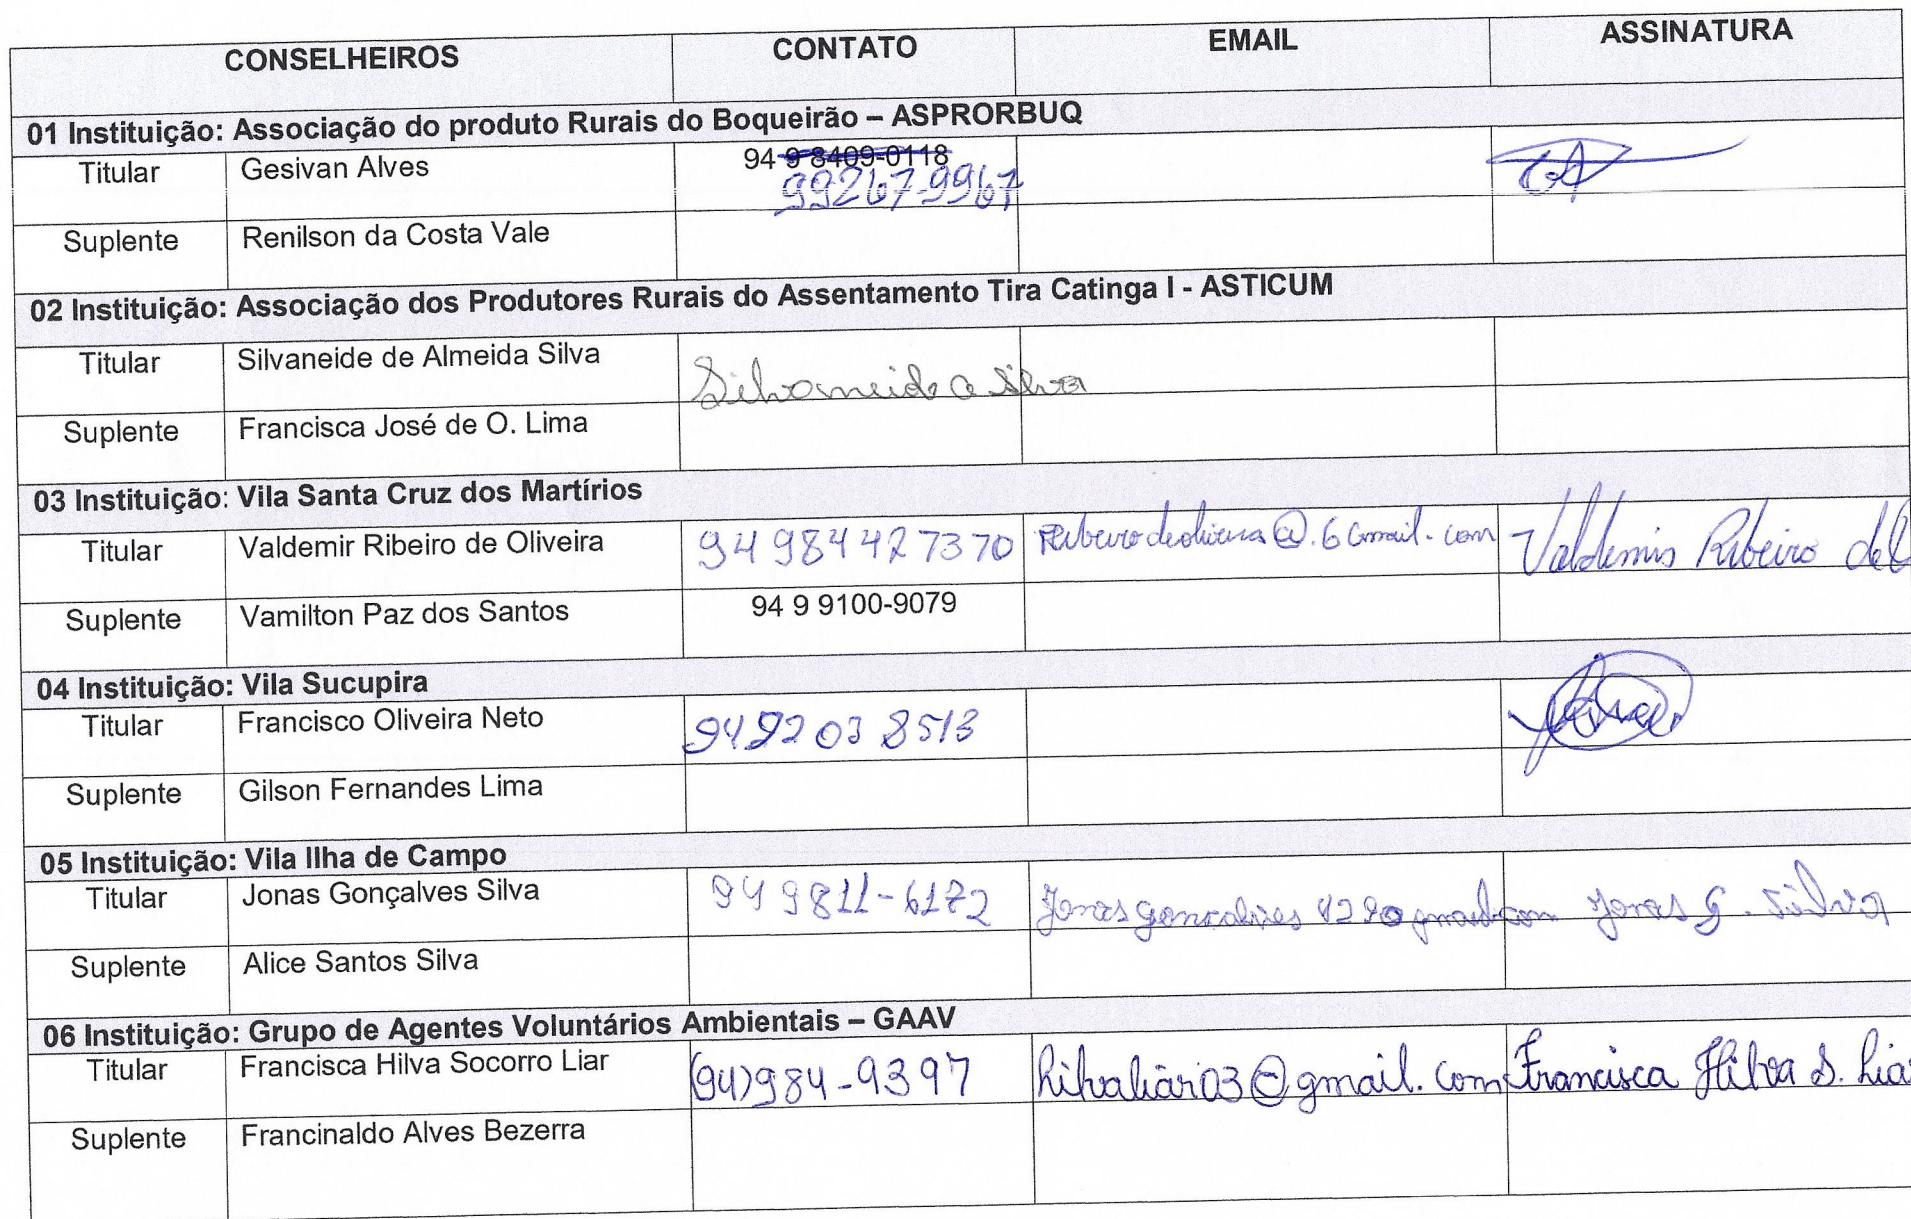 CONSELHEIROS CONTATO EMAIL ASSINATURA
01 Instituição: Associação do produto Rurais do Boqueirão – ASPRORBUQ
Titular Gesivan Alves 94 9 8409-0118
99267-9967
Suplente Renilson da Costa Vale
02 Instituição: Associação dos Produtores Rurais do Assentamento Tira Catinga I - ASTICUM
Titular Silvaneide de Almeida Silva Silvaneide A Silva
Suplente Francisca José de O. Lima
03 Instituição: Vila Santa Cruz dos Martírios
Titular Valdemir Ribeiro de Oliveira 94 984427370 Valdemir Ribeiro de O
Suplente Vamilton Paz dos Santos 94 9 9100-9079
04 Instituição: Vila Sucupira
Titular Francisco Oliveira Neto 949203 8513
Suplente Gilson Fernandes Lima
05 Instituição: Vila Ilha de Campo
Titular Jonas Gonçalves Silva 94 9811-6172 Jonas G. Silva
Suplente Alice Santos Silva
06 Instituição: Grupo de Agentes Voluntários Ambientais – GAAV
Titular Francisca Hilva Socorro Liar (94)984-9397 hilvaliar03@gmail.com Francisca Hilva S. Liar
Suplente Francinaldo Alves Bezerra